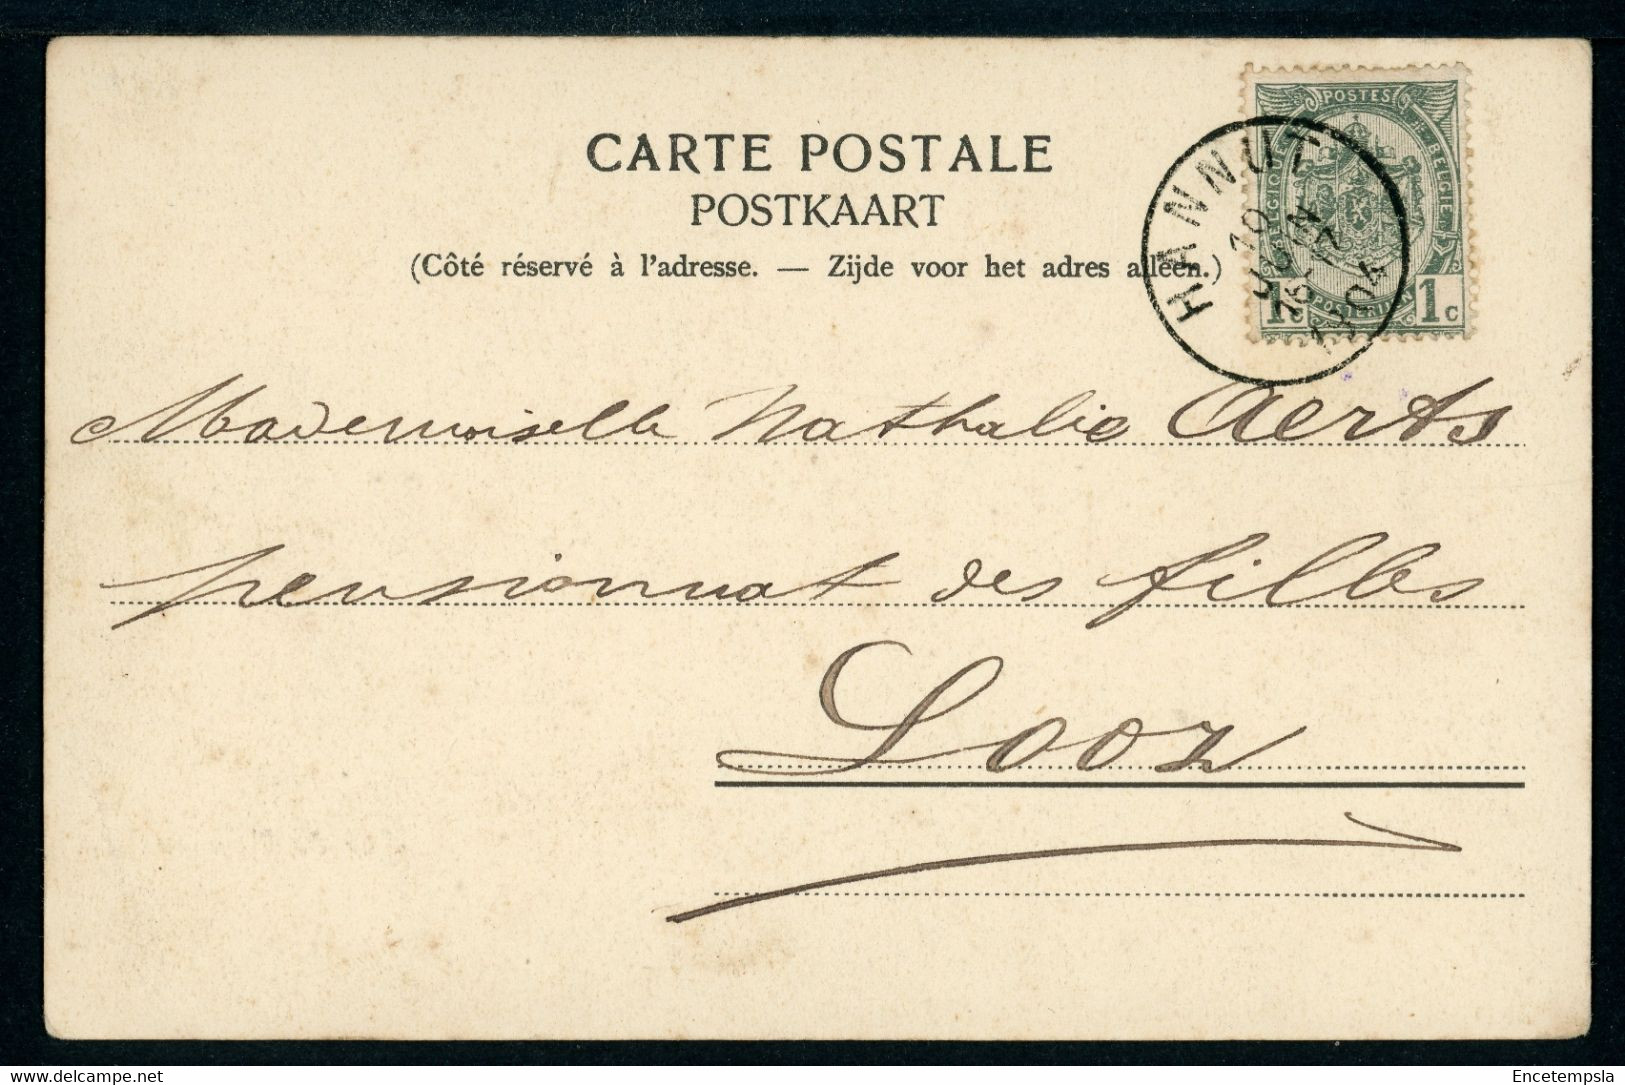 CARTE POSTALE
POSTKAART
(Côté réservé à l'adresse. — Zijde voor het adres alleen.)
POSTES
BELGIQUE BELGIE
POSTERIJEN
1c 1c
HANNUT
10
1904
Mademoiselle Nathalie Aerts
pensionnat des filles
Looz
www.delcampe.net
Encetempsla